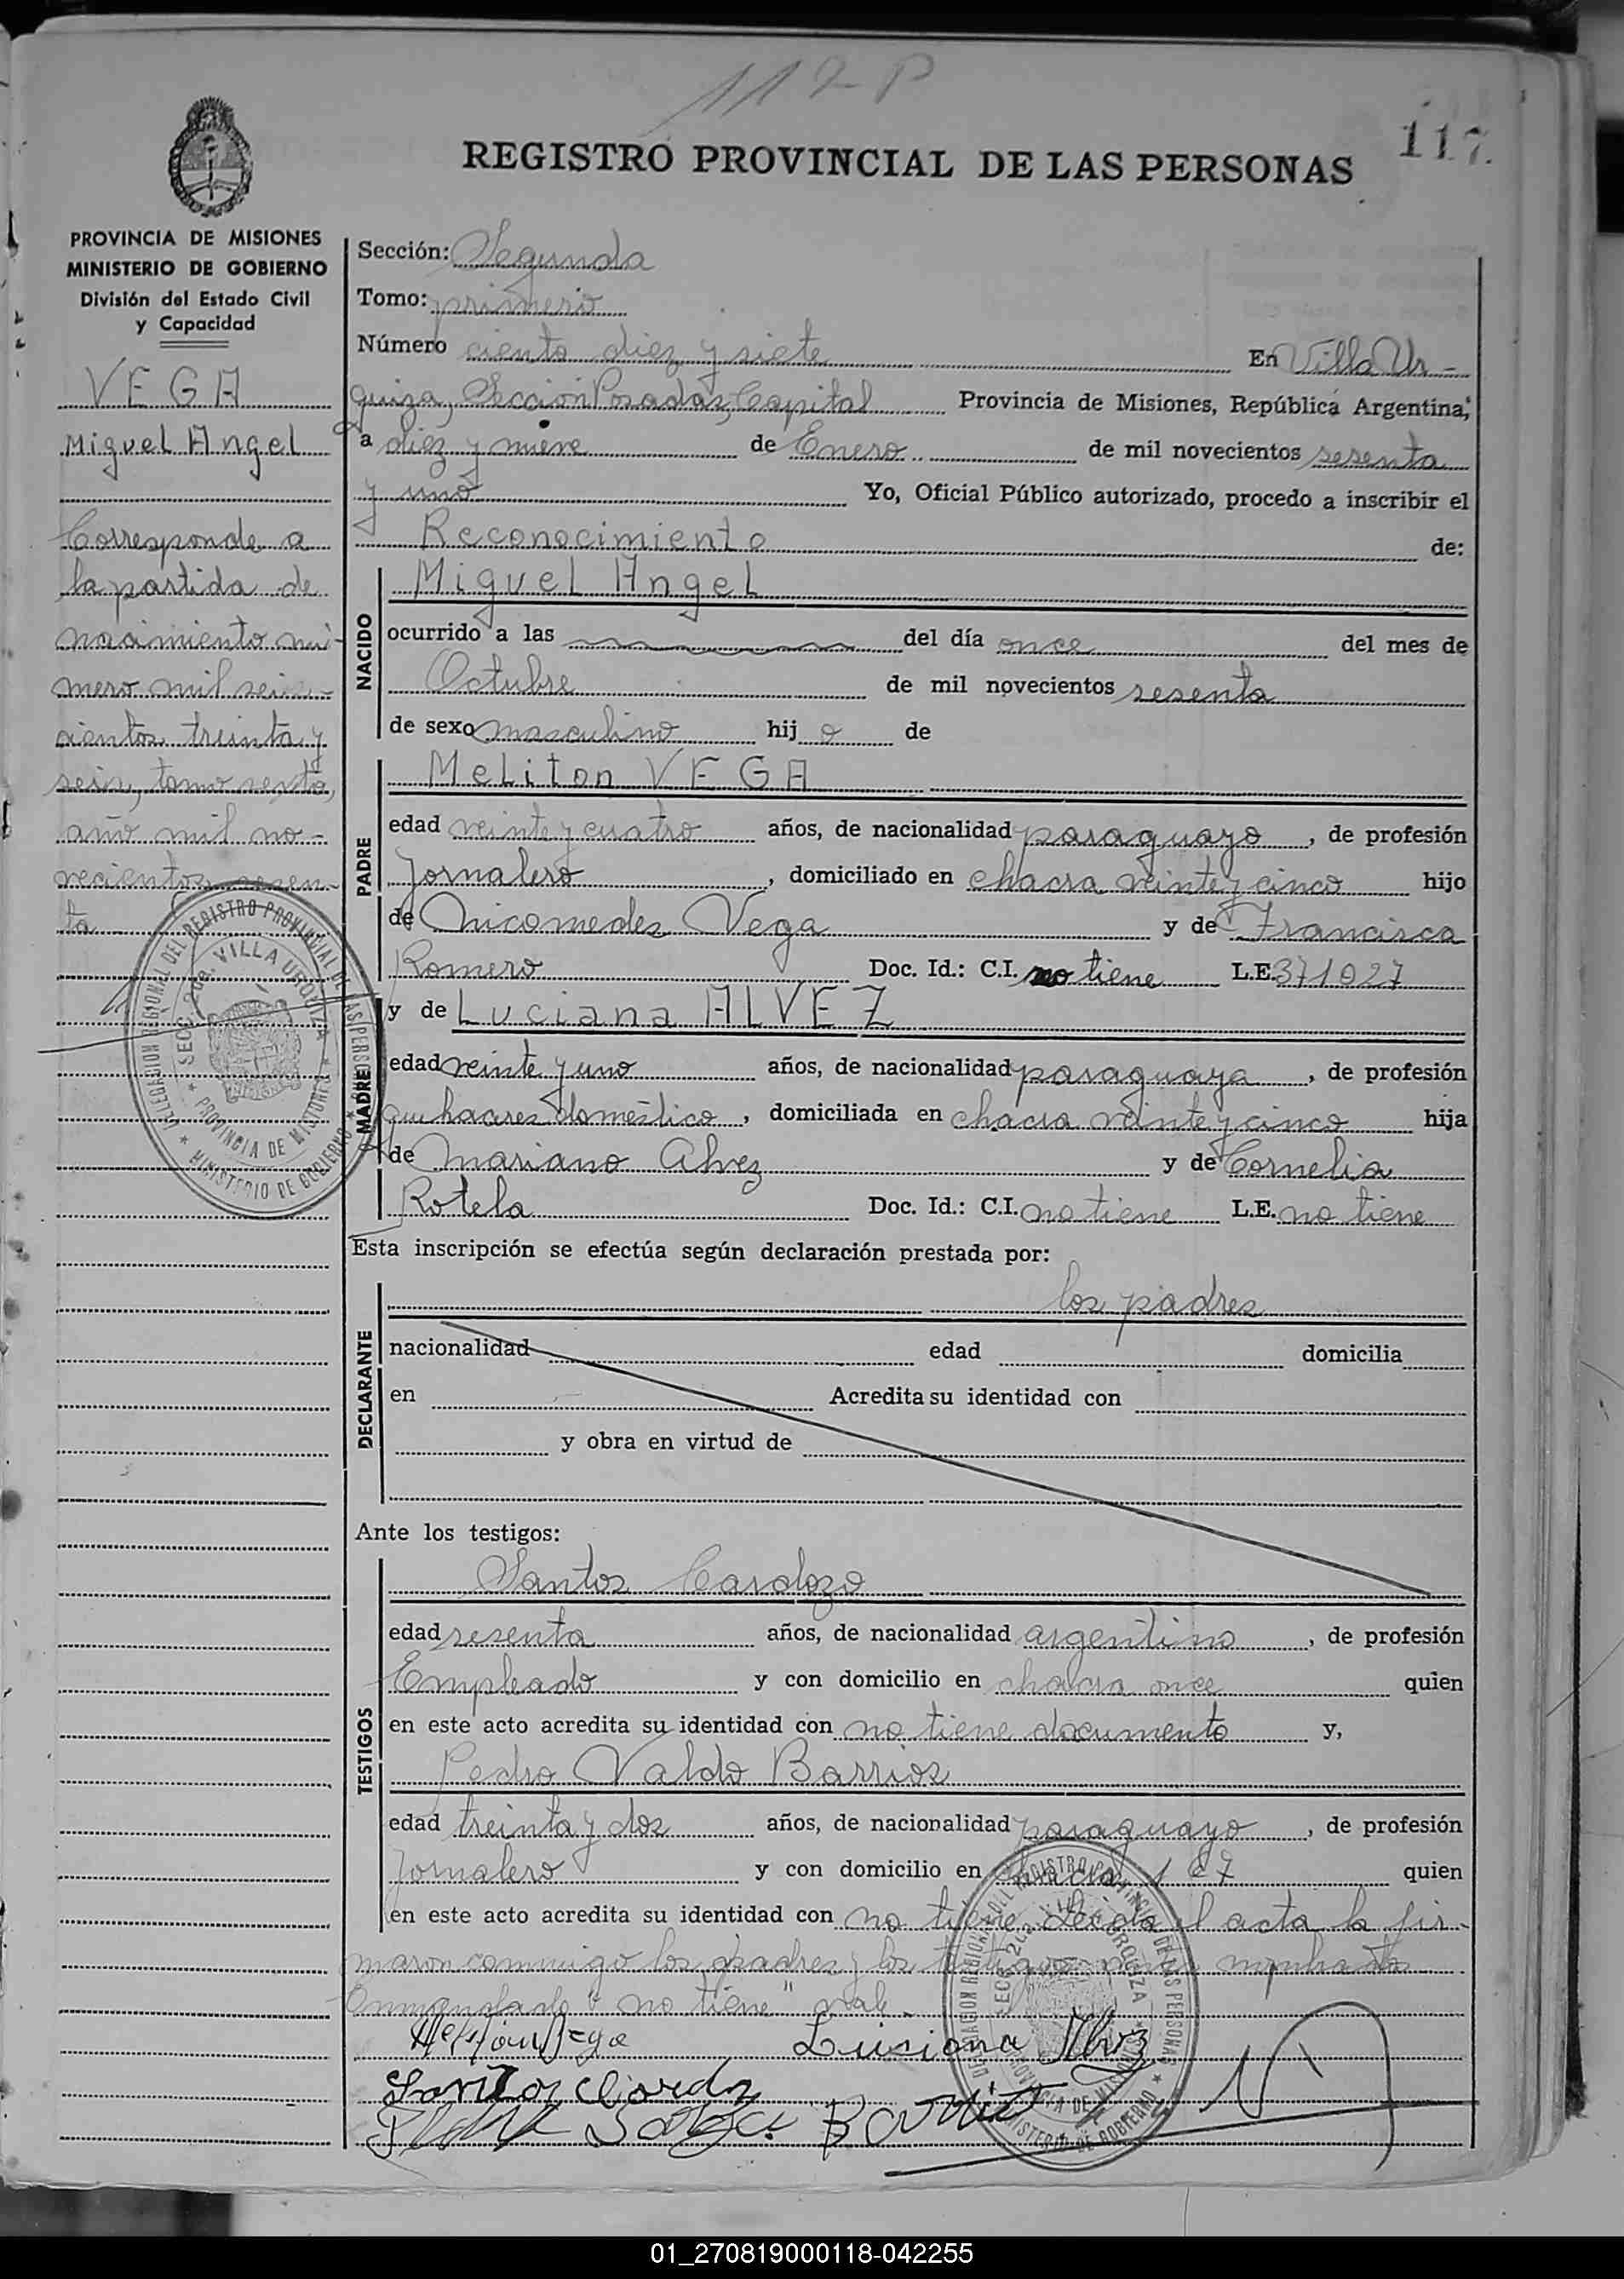 117 P
117.
REGISTRO PROVINCIAL DE LAS PERSONAS
PROVINCIA DE MISIONES
MINISTERIO DE GOBIERNO
División del Estado Civil
y Capacidad
VEGA
Miguel Angel
Corresponde a
la partida de
nacimiento nú-
mero mil seis-
cientos treinta y
seis, tomo sexto,
año mil no-
vecientos sesen-
ta
DELEGACION REGIONAL DEL REGISTRO PROVINCIAL DE LAS PERSONAS
SECC. 2da. VILLA URQUIZA
PROVINCIA DE MISIONES
MINISTERIO DE GOBIERNO
Sección: Segunda
Tomo: primero
Número ciento diez y siete En Villa Ur-
quiza, Sección Posadas, Capital Provincia de Misiones, República Argentina,
a diez y nueve de Enero de mil novecientos sesenta
y uno Yo, Oficial Público autorizado, procedo a inscribir el
Reconocimiento de:
NACIDO
Miguel Angel
ocurrido a las del día once del mes de
Octubre de mil novecientos sesenta
de sexo masculino hij o de
PADRE
Meliton VEGA
edad veinte y cuatro años, de nacionalidad paraguayo, de profesión
Jornalero, domiciliado en chacra veinte y cinco hijo
de Nicomedes Vega y de Francisca
Romero Doc. Id.: C.I. no tiene L.E. 371027
MADRE
y de Luciana ALVEZ
edad veinte y uno años, de nacionalidad paraguaya, de profesión
quehaceres doméstico, domiciliada en chacra veinte y cinco hija
de Mariano Alvez y de Cornelia
Rotela Doc. Id.: C.I. no tiene L.E. no tiene
Esta inscripción se efectúa según declaración prestada por:
DECLARANTE
los padres
nacionalidad edad domicilia
en Acredita su identidad con
y obra en virtud de
Ante los testigos:
TESTIGOS
Santos Cardozo
edad sesenta años, de nacionalidad argentino, de profesión
Empleado y con domicilio en chacra once quien
en este acto acredita su identidad con no tiene documento y,
Pedro Valdo Barrios
edad treinta y dos años, de nacionalidad paraguayo, de profesión
Jornalero y con domicilio en chacra quien
en este acto acredita su identidad con no tiene. Leída el acta la fir-
maron conmigo los padres y los testigos
Enmendado "no tiene" vale.
Meliton Vega Luisiana Alvez
Santos Cardoz
Barrios
DELEGACION REGIONAL DEL REGISTRO PROVINCIAL DE LAS PERSONAS
SECC. 2da. VILLA URQUIZA
PROVINCIA DE MISIONES
MINISTERIO DE GOBIERNO
01_270819000118-042255